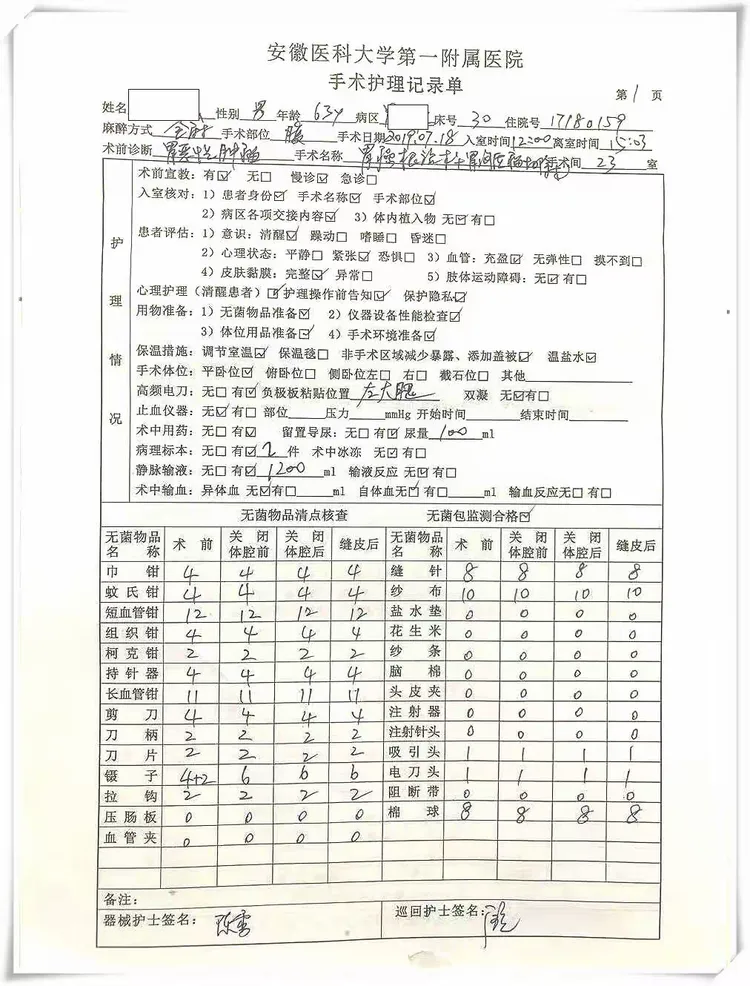 安徽医科大学第一附属医院
手术护理记录单
第 1 页
姓名 性别 男 年龄 63y 病区 床号 30 住院号 17180159
麻醉方式 全麻 手术部位 腹 手术日期 2019.07.18 入室时间 12:00 离室时间 15:03
术前诊断 胃恶性肿瘤 手术名称 手术间 23 室
护理情况
术前宣教：有☑ 无□ 慢诊☑ 急诊□
入室核对：1）患者身份☑ 手术名称☑ 手术部位☑
2）病区各项交接内容☑ 3）体内植入物 无☑有□
患者评估：1）意识：清醒☑ 躁动□ 嗜睡□ 昏迷□
2）心理状态：平静□ 紧张☑ 恐惧□ 3）血管：充盈☑ 无弹性□ 摸不到□
4）皮肤黏膜：完整☑ 异常□ 5）肢体运动障碍：无☑有□
心理护理（清醒患者）☑护理操作前告知☑ 保护隐私☑
用物准备：1）无菌物品准备☑ 2）仪器设备性能检查☑
3）体位用品准备☑ 4）手术环境准备☑
保温措施：调节室温☑ 保温毯□ 非手术区域减少暴露、添加盖被☑ 温盐水☑
手术体位：平卧位☑ 俯卧位□ 侧卧位左□ 右□ 截石位□ 其他
高频电刀：无□有☑负极板粘贴位置 左大腿 双凝 无☑有□
止血仪器：无☑有□部位 压力 mmHg 开始时间 结束时间
术中用药：无□有☑ 留置导尿：无□有☑尿量 100 ml
病理标本：无□有☑ 2 件 术中冰冻 无☑有□
静脉输液：无□有☑ 1200 ml 输液反应 无☑有□
术中输血：异体血 无☑有□ ml 自体血无☑有□ ml 输血反应无□有□
无菌物品清点核查 无菌包监测合格☑
无菌物品名称 术前 关闭体腔前 关闭体腔后 缝皮后 无菌物品名称 术前 关闭体腔前 关闭体腔后 缝皮后
巾钳 4 4 4 4 缝针 8 8 8 8
蚊氏钳 4 4 4 4 纱布 10 10 10 10
短血管钳 12 12 12 12 盐水垫 0 0 0 0
组织钳 4 4 4 4 花生米 0 0 0 0
柯克钳 2 2 2 2 纱条 0 0 0 0
持针器 4 4 4 4 脑棉 0 0 0 0
长血管钳 11 11 11 11 头皮夹 0 0 0 0
剪刀 4 4 4 4 注射器 0 0 0 0
刀柄 2 2 2 2 注射针头 0 0 0 0
刀片 2 2 2 2 吸引头 1 1 1 1
镊子 4+2 6 6 6 电刀头 1 1 1 1
拉钩 2 2 2 2 阻断带 0 0 0 0
压肠板 0 0 0 0 棉球 8 8 8 8
血管夹 0 0 0 0
备注：
器械护士签名： 陈雪 巡回护士签名：